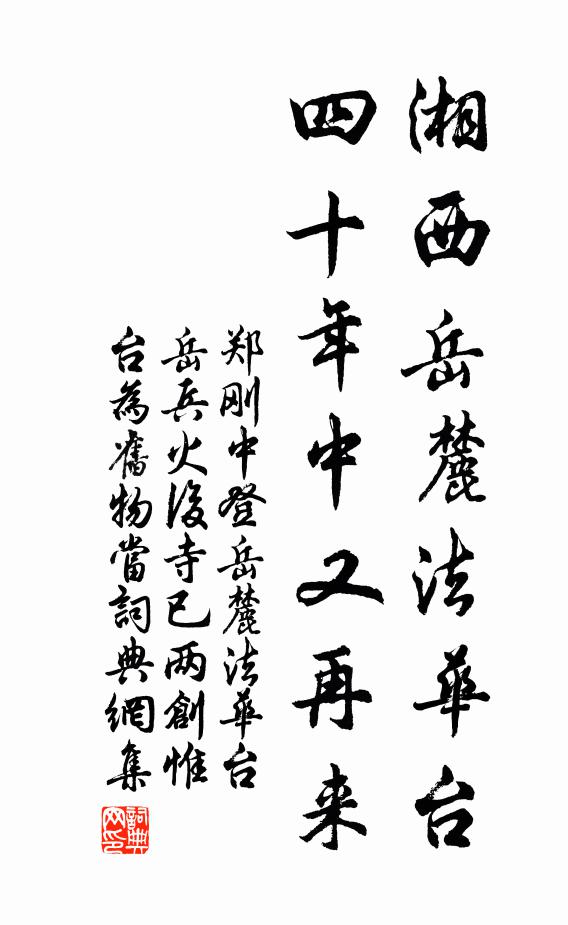 湘西岳麓法華台
四十年中又再来
郑刚中登岳麓法華台
岳兵火後寺已两創惟
台為舊物當詞典網集
詞典
网印